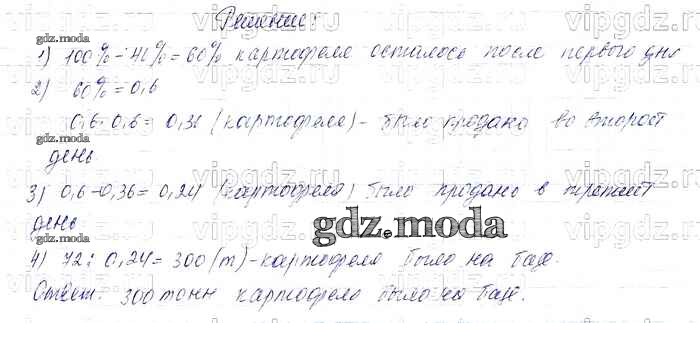 Решение:
1) 100% - 40% = 60% картофеля осталось после первого дня
2) 60% = 0,6
0,6 · 0,6 = 0,36 (картофеля) - было продано во второй
день
3) 0,6 - 0,36 = 0,24 (картофеля) было продано в третий
день
4) 72 : 0,24 = 300 (т) - картофеля было на базе.
Ответ: 300 тонн картофеля было на базе.
gdz.moda